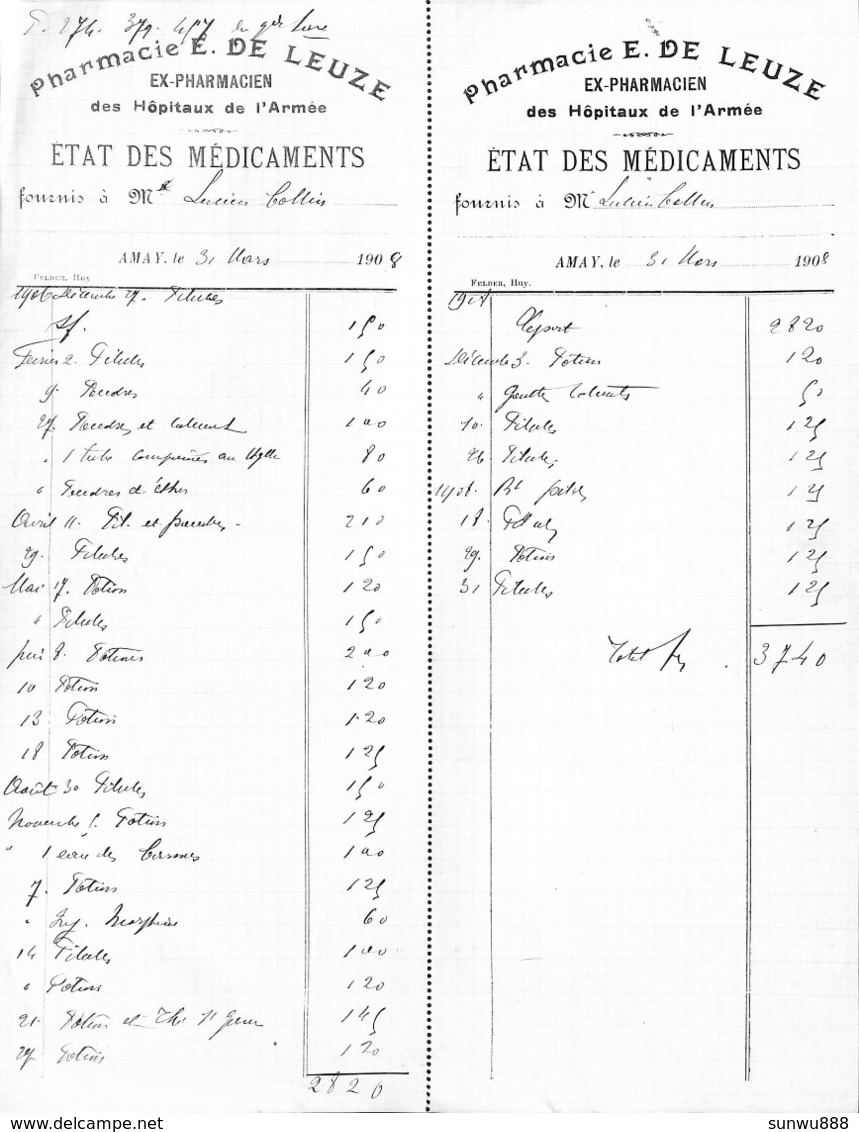 274. 379. 457
Pharmacie E. DE LEUZE
EX-PHARMACIEN
des Hôpitaux de l'Armée
ÉTAT DES MÉDICAMENTS
fournis à M Lucien Collin
AMAY, le 31 Mars 1908
FELDER, Huy
1906 Décembre 27. Pilules
150
Février 2. Pilules 150
9. Poudres 40
27. Poudres et 100
" 1 tube comprimés au 80
" Poudres d'éther 60
Avril 11. Pil. et poudres - 210
29. Pilules 150
Mai 17. Potion 120
" Pilules 150
Juin 8. Potions 200
10 Potion 120
13 Potion 120
18 Potion 125
Août 30 Pilules 150
Novembre 5. Potion 125
" 1 eau des Carmes 100
7. Potion 125
" Inj. Morphine 60
14 Pilules 100
" Potion 120
21. Potion et Thé 145
27. Potion 120
2820
Pharmacie E. DE LEUZE
EX-PHARMACIEN
des Hôpitaux de l'Armée
ÉTAT DES MÉDICAMENTS
fournis à Mr Lucien Collin
AMAY, le 31 Mars 1908
FELDER, Huy.
Report 2820
Décembre 3. Potion 120
" Gouttes calmantes 50
10. Pilules 125
26 Pilules 125
1908. 125
18. 125
29. Potion 125
31 Pilules 125
Total frs. 3740
sunwu888